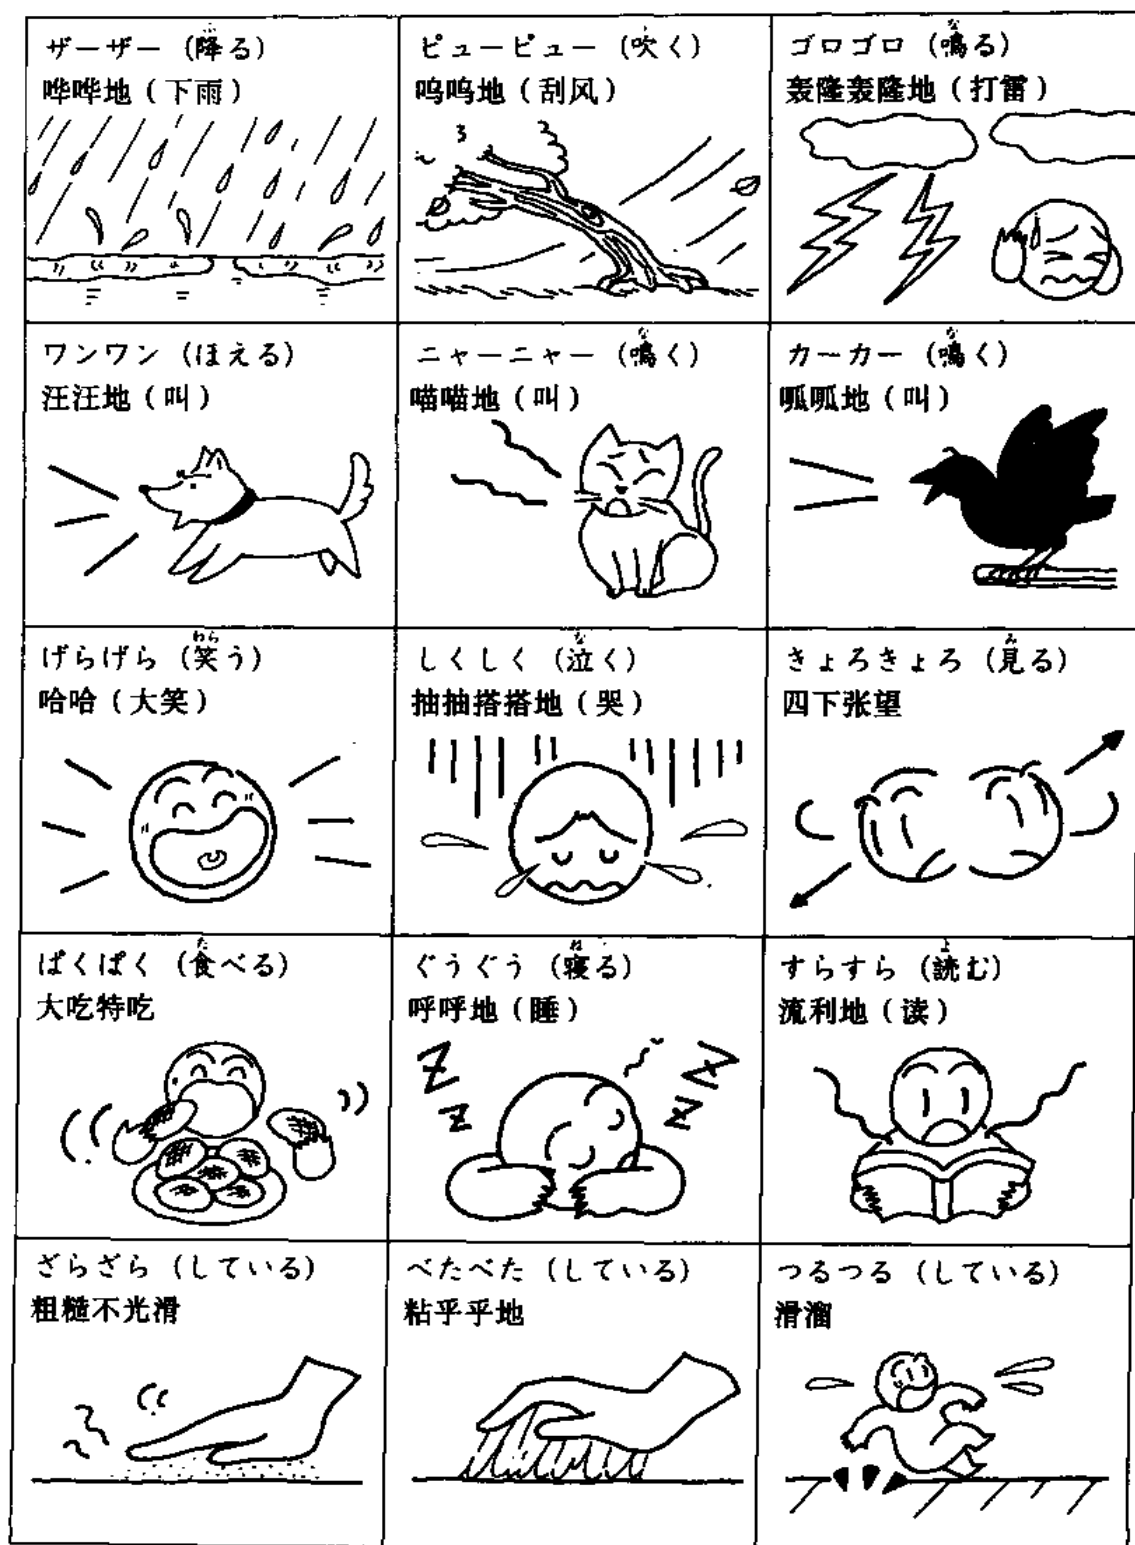 ザーザー（降る）
哗哗地（下雨）
ピューピュー（吹く）
呜呜地（刮风）
ゴロゴロ（鳴る）
轰隆轰隆地（打雷）
ワンワン（ほえる）
汪汪地（叫）
ニャーニャー（鳴く）
喵喵地（叫）
カーカー（鳴く）
呱呱地（叫）
げらげら（笑う）
哈哈（大笑）
しくしく（泣く）
抽抽搭搭地（哭）
きょろきょろ（見る）
四下张望
ぱくぱく（食べる）
大吃特吃
ぐうぐう（寝る）
呼呼地（睡）
Z Z Z Z
すらすら（読む）
流利地（读）
ざらざら（している）
粗糙不光滑
べたべた（している）
粘乎乎地
つるつる（している）
滑溜